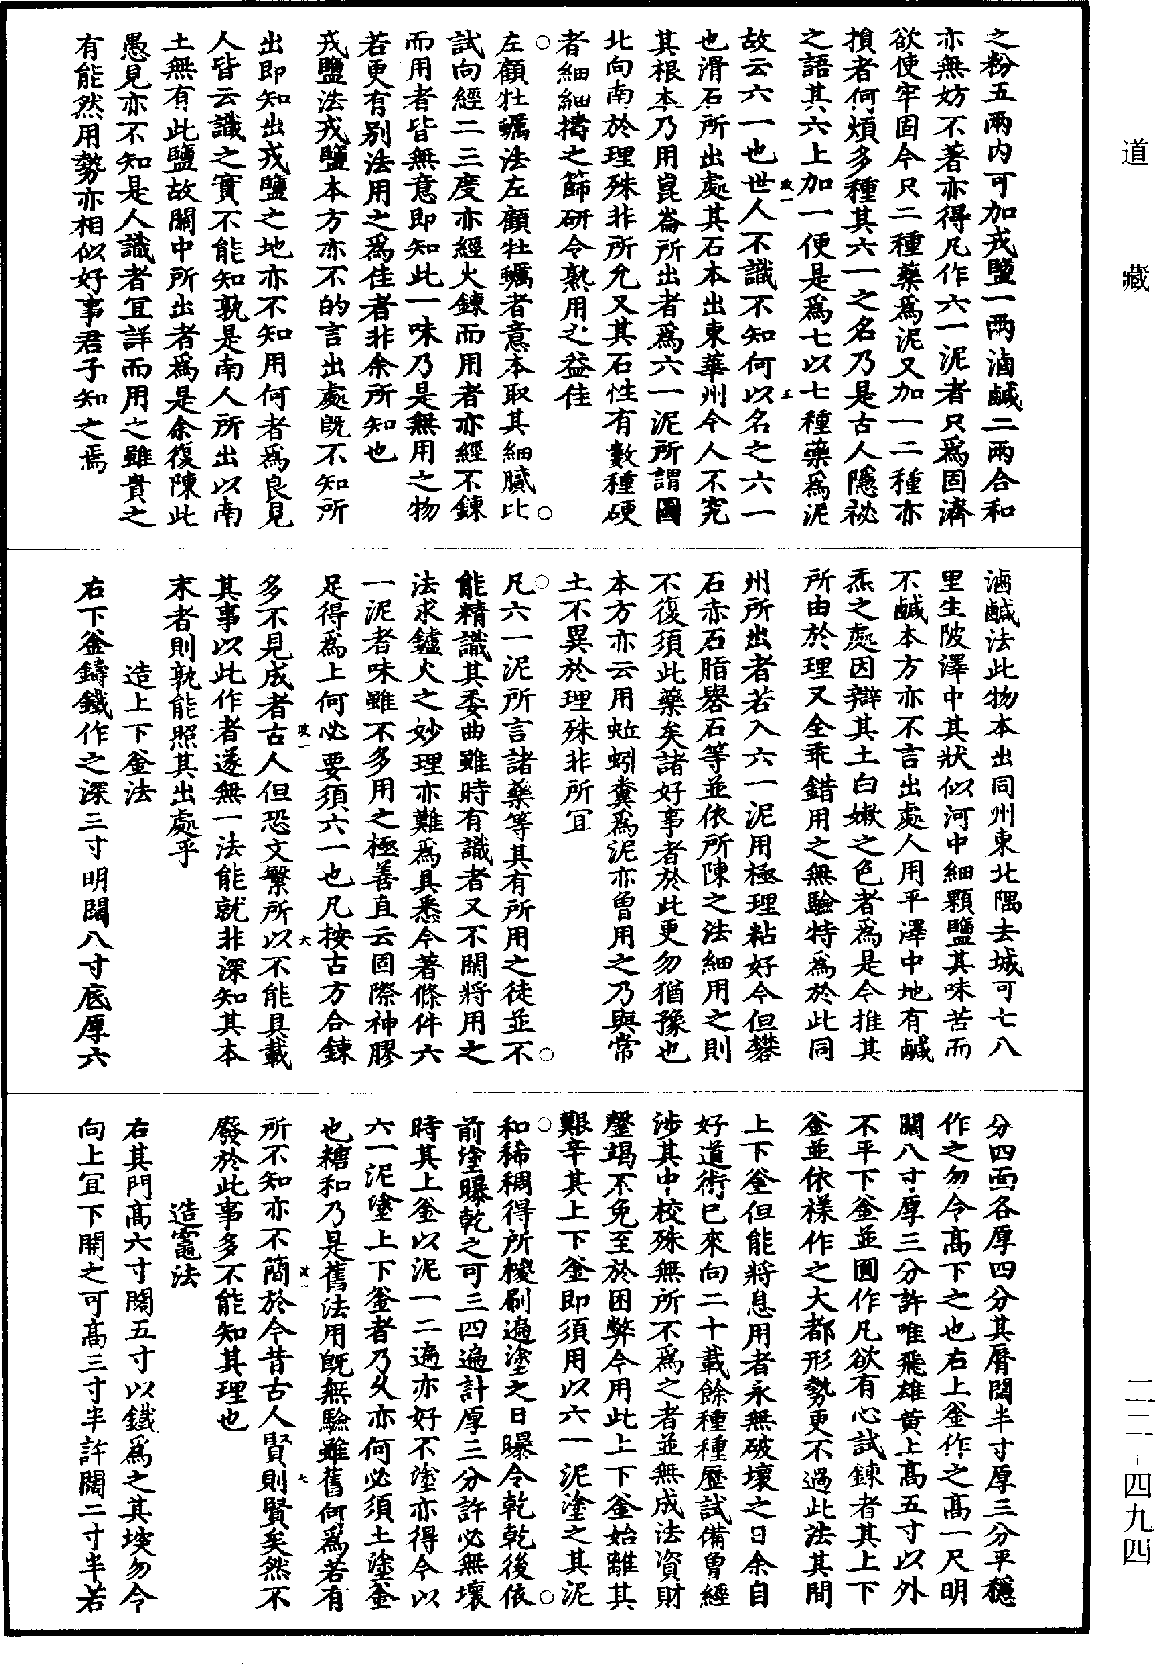 之粉五兩内可加戎鹽一兩滷鹹二兩合和
亦無妨不著亦得凡作六一泥者只爲固濟
欲使牢固今只二種藥爲泥又加一二種亦
損者何煩多種其六一之名乃是古人隱祕
之語其六上加一便是爲七以七種藥爲泥
故云六一也世人不識不知何以名之六一
也滑石所出處其石本出東華州今人不究
其根本乃用崑崙所出者爲六一泥所謂圖
北向南於理殊非所允又其石性有數種硬
者細細擣之篩研令熟用之益佳
左顧牡蠣法左顧牡蠣者意本取其細膩比
試向經二三度亦經火鍊而用者亦經不鍊
而用者皆無意即知此一味乃是無用之物
若更有别法用之爲佳者非余所知也
戎鹽法戎鹽本方亦不的言出處旣不知所
出即知出戎鹽之地亦不知用何者爲良見
人皆云識之實不能知孰是南人所出以南
土無有此鹽故關中所出者爲是余復陳此
愚見亦不知是人識者宜詳而用之雖貴之
有能然用勢亦相似好事君子知之焉
滷鹹法此物本出同州東北隅去城可七八
里生陂澤中其狀似河中細顆鹽其味苦而
不鹹本方亦不言出處人用平澤中地有鹹
炁之處因辯其土白嫩之色者爲是今推其
所由於理又全乖錯用之無驗特爲於此同
州所出者若入六一泥用極理粘好今但礬
石赤石脂礜石等並依所陳之法細用之則
不復須此藥矣諸好事者於此更勿猶豫也
本方亦云用蚯蚓糞爲泥亦曾用之乃與常
土不異於理殊非所宜
凡六一泥所言諸藥等其有所用之徒並不
能精識其委曲雖時有識者又不閑將用之
法求鑪火之妙理亦難爲具悉今著條件六
一泥者味雖不多用之極善直云固際神膠
足得爲上何必要須六一也凡按古方合鍊
多不見成者古人但恐文繁所以不能具載
其事以此作者遂無一法能就非深知其本
末者則孰能照其出處乎
造上下釜法
右下釜鑄鐵作之深三寸明闊八寸底厚六
分四面各厚四分其脣闊半寸厚三分平穩
作之勿令高下之也右上釜作之高一尺明
闊八寸厚三分許唯飛雄黄上高五寸以外
不平下釜並圓作凡欲有心試鍊者其上下
釜並依樣作之大都形勢更不過此法其間
上下釜但能將息用者永無破壞之日余自
好道術已來向二十載餘種種歷試備曾經
涉其中校殊無所不爲之者並無成法資財
罄竭不免至於困弊今用此上下釜始離其
艱辛其上下釜即須用以六一泥塗之其泥
和稀稠得所㮶刷遍塗之日曝令乾乾後依
前塗曝乾之可三四遍計厚三分許必無壞
時其上釜以泥一二遍亦好不塗亦得今以
六一泥塗上下釜者乃久亦何必須土塗釜
也糖和乃是舊法用旣無驗雖舊何爲若有
所不知亦不簡於今昔古人賢則賢矣然不
廢於此事多不能知其理也
造竈法
右其門高六寸闊五寸以鐵爲之其埃勿令
向上宜下開之可高三寸半許闊二寸半若
道藏
二二-四九四